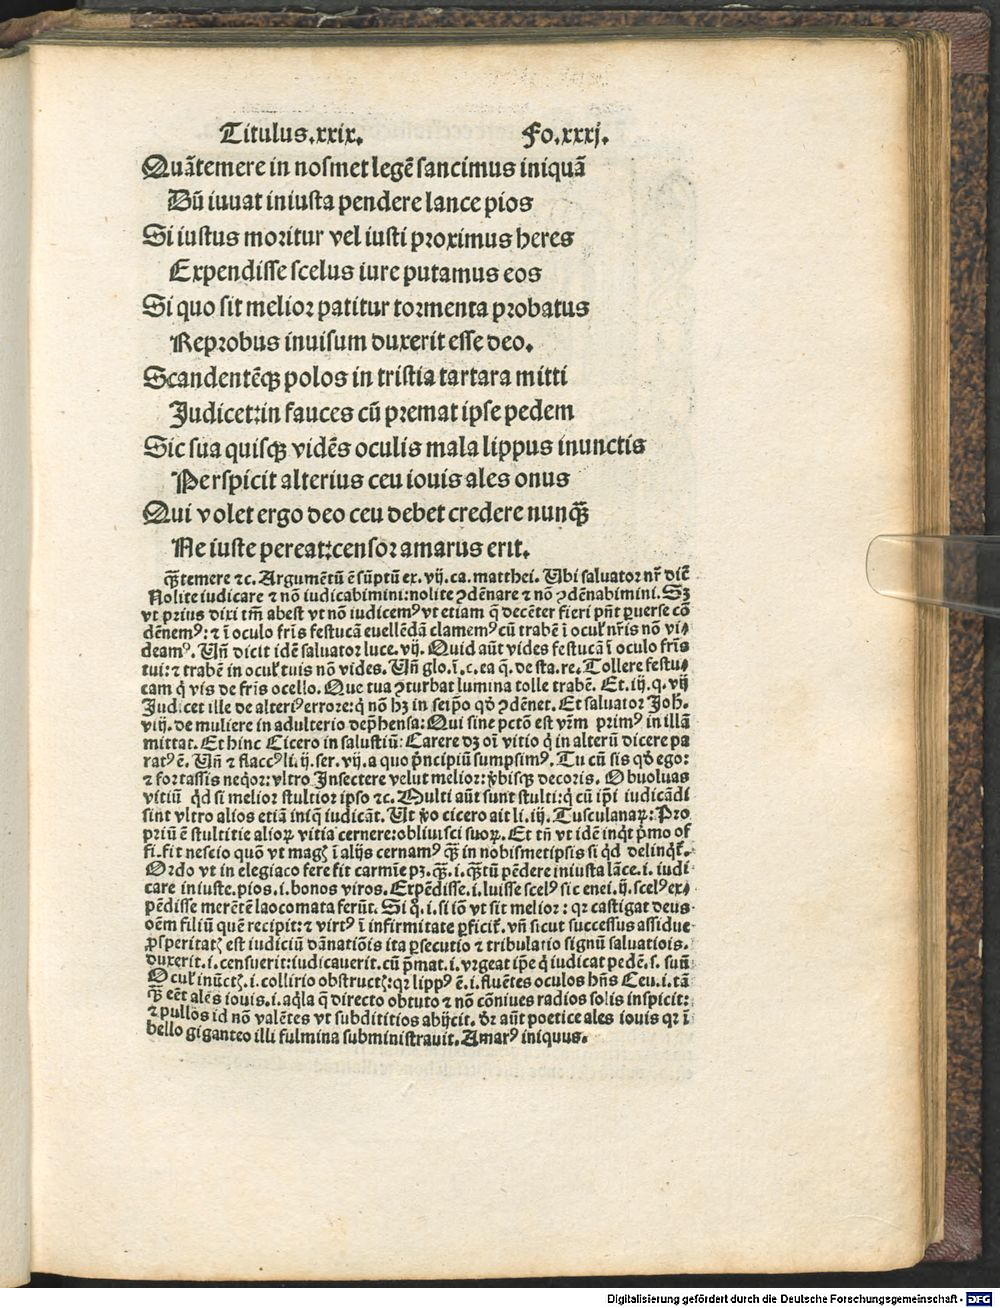 Titulus.xxix. Fo.xxxj.
Quãtemere in nosmet legẽ sancimus iniquã
Dũ iuuat iniusta pendere lance pios
Si iustus moritur vel iusti proximus heres
Expendisse scelus iure putamus eos
Si quo sit melior patitur tormenta probatus
Reprobus inuisum duxerit esse deo.
Scandentẽqꝫ polos in tristia tartara mitti
Judicet:in fauces cũ premat ipse pedem
Sic sua quisqꝫ vidẽs oculis mala lippus inunctis
Perspicit alterius ceu iouis ales onus
Qui volet ergo deo ceu debet credere nunqꝫ̃
Ne iuste pereat:censor amarus erit.
qꝫ̃temere ⁊c. Argumẽtũ ẽ sũptũ ex. vij. ca. matthei. Ubi saluator nr̃ dic̃
Nolite iudicare ⁊ nõ iudicabimini:nolite ꝯdẽnare ⁊ nõ ꝯdẽnabimini. Sꝫ
vt prius dixi tm̃ abest vt nõ iudicemꝰ vt etiam q̃ decẽter fieri pñt ꝑuerse cõ
dẽnemꝰ: ⁊ ĩ oculo fr̃is festucã euellẽdã clamemꝰ cũ trabẽ ĩ oculꝭ nr̃is nõ vi⸗
deamꝰ. Uñ dicit idẽ saluator luce. vij. Quid aũt vides festucã ĩ oculo fr̃is
tui: ⁊ trabẽ in oculꝭ tuis nõ vides. Uñ glo. ĩ. c. ea q̃. de sta. re. Tollere festu⸗
cam q̃ vis de fr̃is ocello. Que tua ꝯturbat lumina tolle trabẽ. Et. iij. q. vij
Judicet ille de alteriꝰ errore: q̃ nõ hꝫ in seip̃o qd̃ ꝯdẽnet. Et saluator Joh̃.
viij. de muliere in adulterio dep̃hensa: Qui sine pctõ est vr̃m primꝰ in illã
mittat. Et hinc Cicero in salustiũ: Carere dꝫ oĩ vitio q̃ in alterũ dicere pa
ratꝰ ẽ. Uñ ⁊ flaccꝰ li. ij. ser. vij. a quo p̃ncipiũ sumpsimꝰ. Tu cũ sis qd̃ ego:
⁊ fortassis neqor: vltro Insectere velut melior: v̾bisqꝫ decoris. Obuoluas
vitiũ qd̃ si melior stultior ipso ⁊c. Multi aũt sunt stulti: q̃ cũ ip̃i iudicãdi
sint vltro alios etiã iniq̃ iudicãt. Ut v̾o cicero ait li. iij. Tusculanaꝝ: Pro
priũ ẽ stultitie alioꝝ vitia cernere: obliuisci suoꝝ. Et tñ vt idẽ inq̃t p̃mo of
fi. fit nescio quõ vt magꝭ ĩ alijs cernamꝰ qꝫ̃ in nobismetipsis si q̃d delinq̃t̃.
Ordo vt in elegiaco fere fit carmĩe pꝫ. qꝫ̃. i. qꝫ̃tũ pẽdere iniusta lãce. i. iudi
care iniuste. pios. i. bonos viros. Expẽdisse. i. luisse scelꝰ sic enei. ij. scelꝰ ex⸗
pẽdisse merẽtẽ laocomata ferũt. Si q̊. i. si iõ vt sit melior: qr castigat deus
oẽm filiũ quẽ recipit: ⁊ virtꝰ ĩ infirmitate ꝑficit̃. vñ sicut successus assidue
ꝓsperitatꝭ est iudiciũ dãnatiõis ita ꝑsecutio ⁊ tribulatio signũ saluatiois.
duxerit. i. censuerit: iudicauerit. cũ p̃mat. i. vrgeat ip̃e q̃ iudicat pedẽ. s. suũ
Oculꝭ inũctꝭ. i. collirio obstructꝭ: qr lippꝰ ẽ. i. fluẽtes oculos hñs Ceu. i. tã
qꝫ̃ eẽt ales iouis. i. aq̃la q̃ directo obtuto ⁊ nõ cõniues radios solis inspicit:
⁊ pullos id nõ valẽtes vt subdititios abijcit. dr̃ aũt poetice ales iouis qr ĩ
bello giganteo illi fulmina subministrauit. Amarꝰ iniquus.
Digitalisierung gefördert durch die Deutsche Forschungsgemeinschaft - DFG